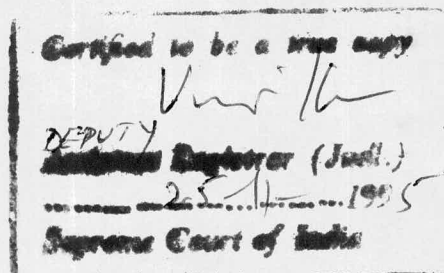 Certified to be a true copy
DEPUTY
Assistant Registrar (Judl.)
25-11-1995
Supreme Court of India